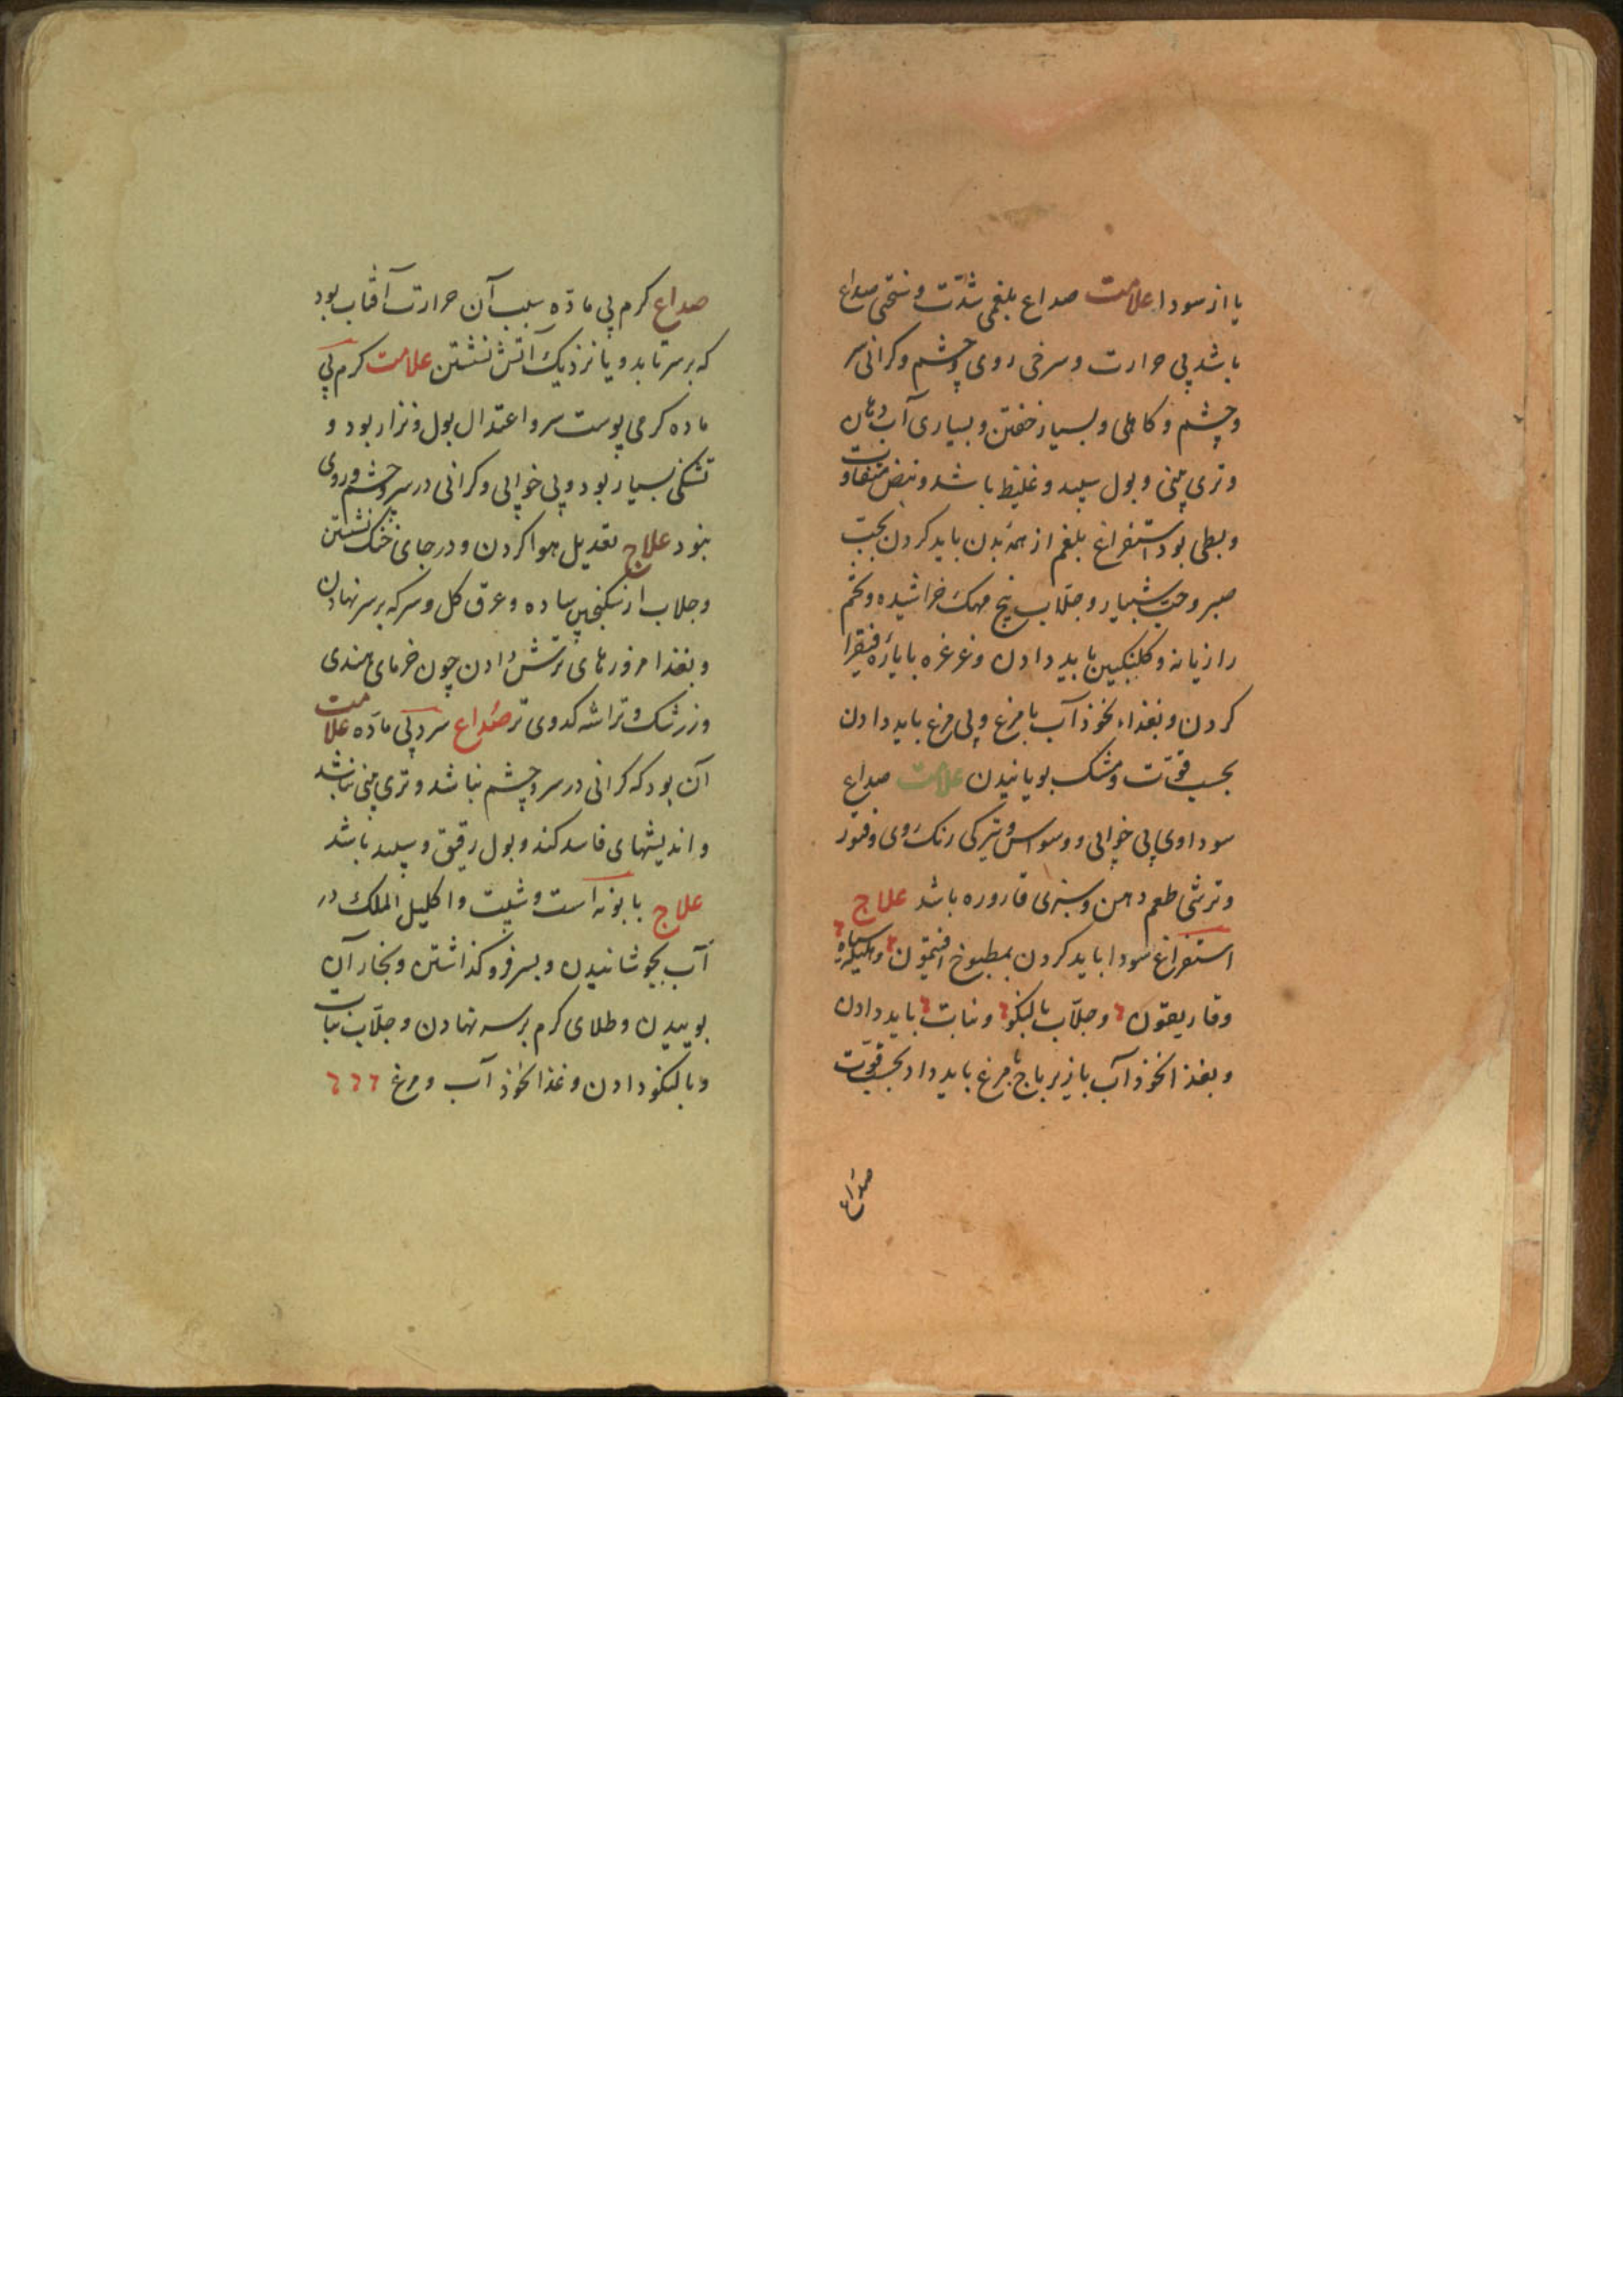 یا از سودا علامت صداع بلغمی شدّت و سختی صداع
باشد بی حرارت و سرخی روی و چشم و کرانی سر
و چشم و کاهلی و بسیار خفتن و بسیاری آب دهان
و تری بینی و بول سپید و غلیظ باشد و نبض متفاوت
و بطی بود استفراغ بلغم از همه بدن باید کردن بحبّ
صبر و حبّ شبیار و جلّاب بیخ مهک خراشیده و تخم
رازیانه و کلنکبین باید دادن و غرغره بایاره فیقرا
کردن و بغذاء نخوذ آب با مرغ و بی مرغ باید دادن
بحسب قوّت و مشک بویانیدن علامت صداع
سوداوی بی خوابی و وسواس و تیرکی رنک روی و فتور
و ترشی طعم دهن و سبزی قاروره باشد علاج
استفراغ سودا باید کردن بمطبوخ افتیمون و هلیله سیاه
و غاریقون و جلّاب بالنکو و نبات باید دادن
و بغذا نخوذ آب با زیرباج با مرغ باید داد بحسب قوّت
صداع
صداع کرم بی مادّه سبب آن حرارت آفتاب بود
که بر سر تابد و یا نزدیک آتش نشستن علامت کرم بی
ماده کرمی پوست سر و اعتدال بول و نزار بود و
تشنکی بسیار بود و بی خوابی و کرانی در سر و چشم و روی
نبود علاج تعدیل هوا کردن و در جای خنک نشستن
و جلاب از سکنجبین ساده و عرق کل و سرکه بر سر نهادن
و بغذا مزورهای ترش دادن چون خرمای هندی
و زرشک و تراشه کدوی تر صداع سرد بی مادّه علامت
آن بود که کرانی در سر و چشم نباشد و تری بینی نباشد
و اندیشهای فاسد کند و بول رقیق و سپید باشد
علاج بابونه است و شبت و اکلیل الملک در
آب بجوشانیدن و بسر فرو کذاشتن و بخار آن
بوییدن و طلای کرم بر سر نهادن و جلّاب نبات
و بالنکو دادن و غذا نخوذ آب و مرغ